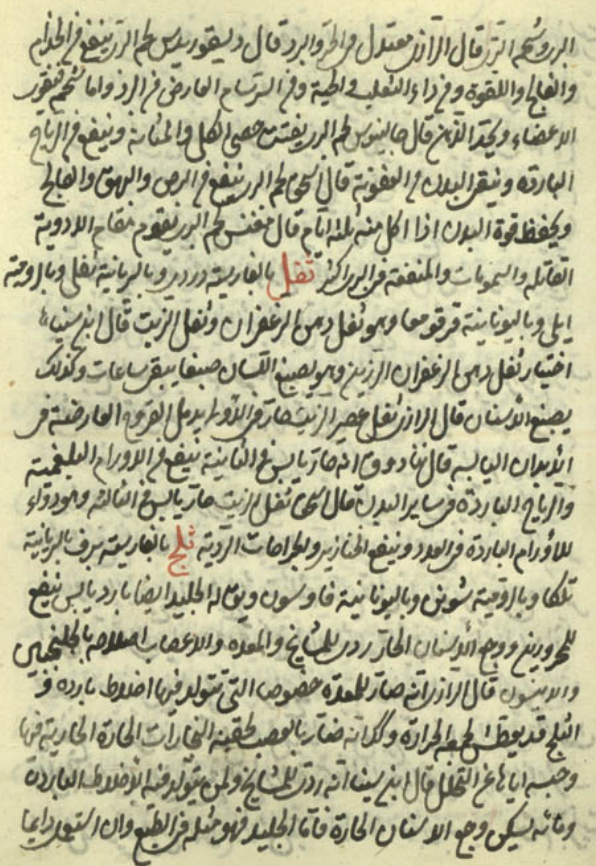 البرى وشحم البرى قال الرازى معتدل فى الحر والبرد قال ديسقوريدس لحم الرز ينفع فى الجذام
والفالج واللقوة وفى داء الثعلب والحية وفى السرسام العارض فى الرز واما شحم فيقوى
الاعضاء ويحد الذهن قال جالينوس لحم الرز يفتت حصى الكلى والمثانة وينفع فى الرياح
الباردة وينقى البدن من العفونة قال اسحق لحم الرز ينفع فى البرص والبهق والفالج
ويحفظ قوة البدن اذا اكل منه ثلثة ايام قال مغنس لحم البرر يقوم مقام الادوية
القاتلة والسمومات والمنفعة فى البرى اكثر ثفل بالفارسية دردى وبالسريانية ثفل وبالرومية
ايلى وباليونانية قرقومعا وهو ثفل دهن الزعفران وثفل الزيت قال ابن سينا
اختيار ثفل دهن الزعفران الرزين وهو يصبغ اللسان صبغا يبقى ساعات وكذلك
يصبغ الاسنان قال الرازى ثفل عصير الزيت حار فى الاولى يدمل القروح العارضة فى
الابدان اليابسة قال انه حار يابس فى الثانية ينفع فى الاورام البلغمية
والرياح الباردة فى ساير البدن قال اسحق ثفل الزيت حار يابس فى الثالثة وهو دواء
للاورام الباردة فى الغدد وينفع الخنازير والجراحات الردية ثلج بالفارسية برف بالسريانية
تلكا وبالرومية شونى وباليونانية فاوسون ويقال له الجليد ايضا بارد يابس ينفع
للمحرورين ووجع الاسنان الحار ردى للمشايخ والمعدة والاعصاب اصلاحه بالجلنجبين
والانيسون قال الرازى انه ضار للمعدة خصوصا التى يتولد فيها اخلاط باردة و
الثلج قد يعطش لجمعه الحرارة وكذا انه ضار بالعصب لحقنه البخارات الحارة الجارية فيها
وحبسه اياها عن التحلل قال ابن سينا انه ردى للمشايخ ولمن يتولد فيه الاخلاط الباردة
وماءه يسكن وجع الاسنان الحارة فاما الجليد فهو مثله فى الطبع وان استعمل دايما